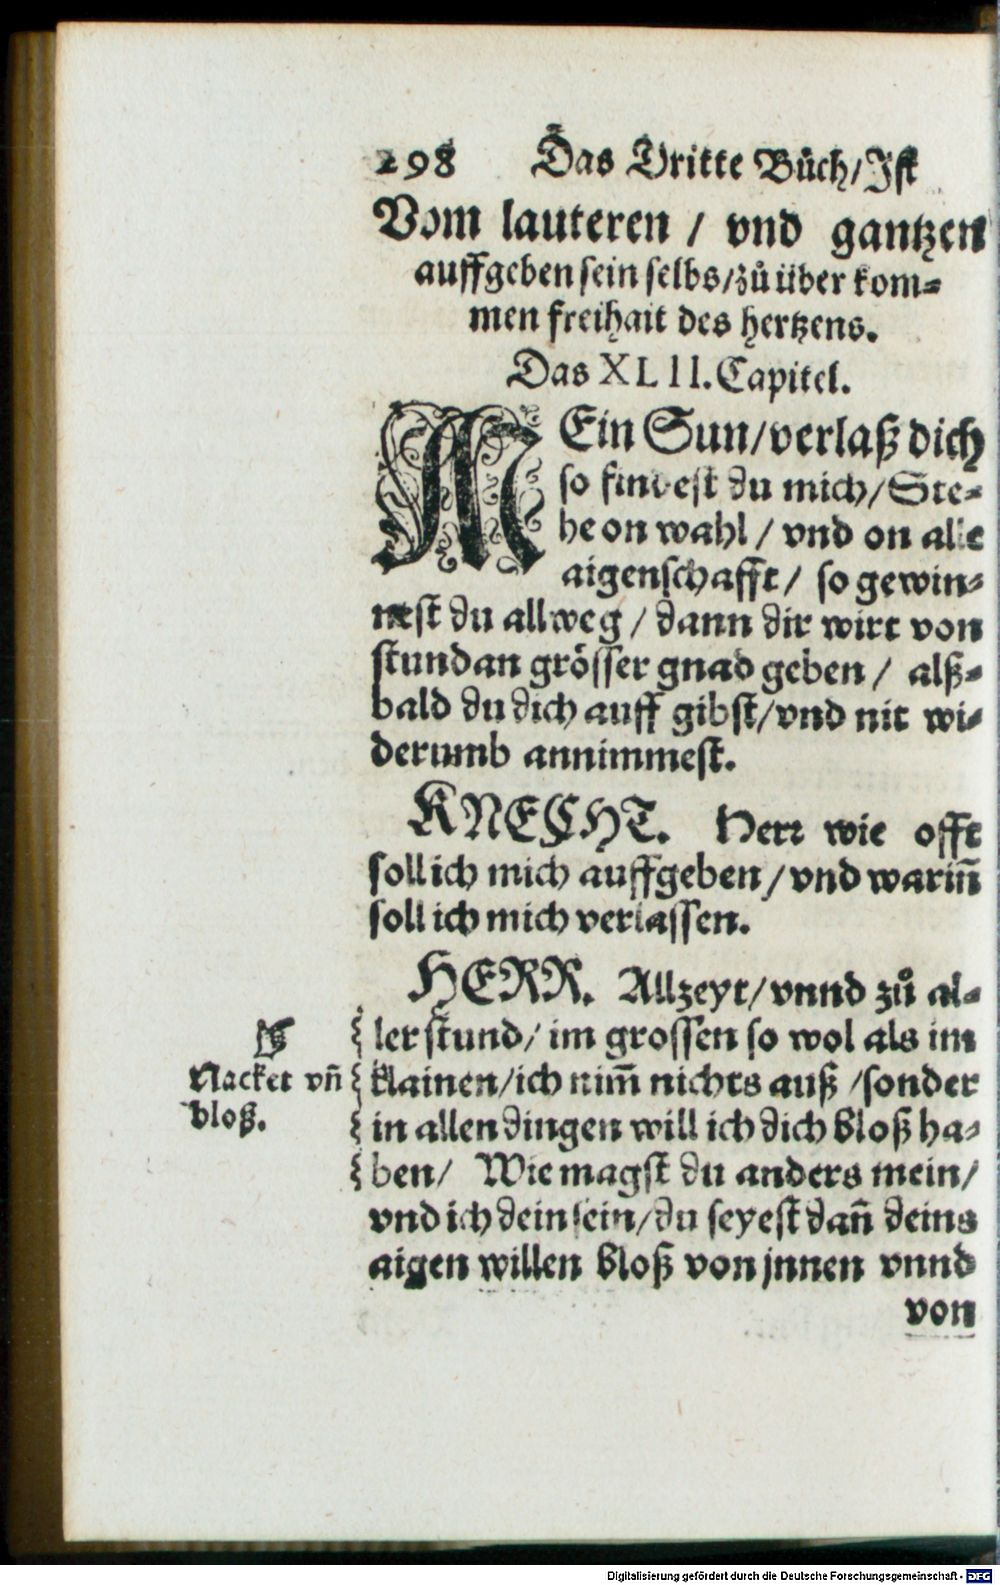 298 Das Dritte Bůch/Ist
Vom lauteren / vnd gantzen
auffgeben sein selbs/zů über kom⸗
men freihait des hertzens.
Das XLII. Capitel.
MEin Sun/verlaß dich
so findest du mich/Ste⸗
he on wahl / vnd on alle
aigenschafft / so gewin⸗
nest du allweg / dann dir wirt von
stundan grösser gnad geben / alß⸗
bald du dich auff gibst/vnd nit wi⸗
derumb annimmest.
KNECHT. Herr wie offt
soll ich mich auffgeben/vnd warin̄
soll ich mich verlassen.
HERR. Allzeyt/vnnd zů al⸗
ler stund/ im grossen so wol als im
klainen/ich nim̄ nichts auß /sonder
in allen dingen will ich dich bloß ha⸗
ben/ Wie magst du anders mein/
vnd ich dein sein/du seyest dan̄ deins
aigen willen bloß von jnnen vnnd
von
☞
Nacket vn̄
bloß.
Digitalisierung gefördert durch die Deutsche Forschungsgemeinschaft - DFG